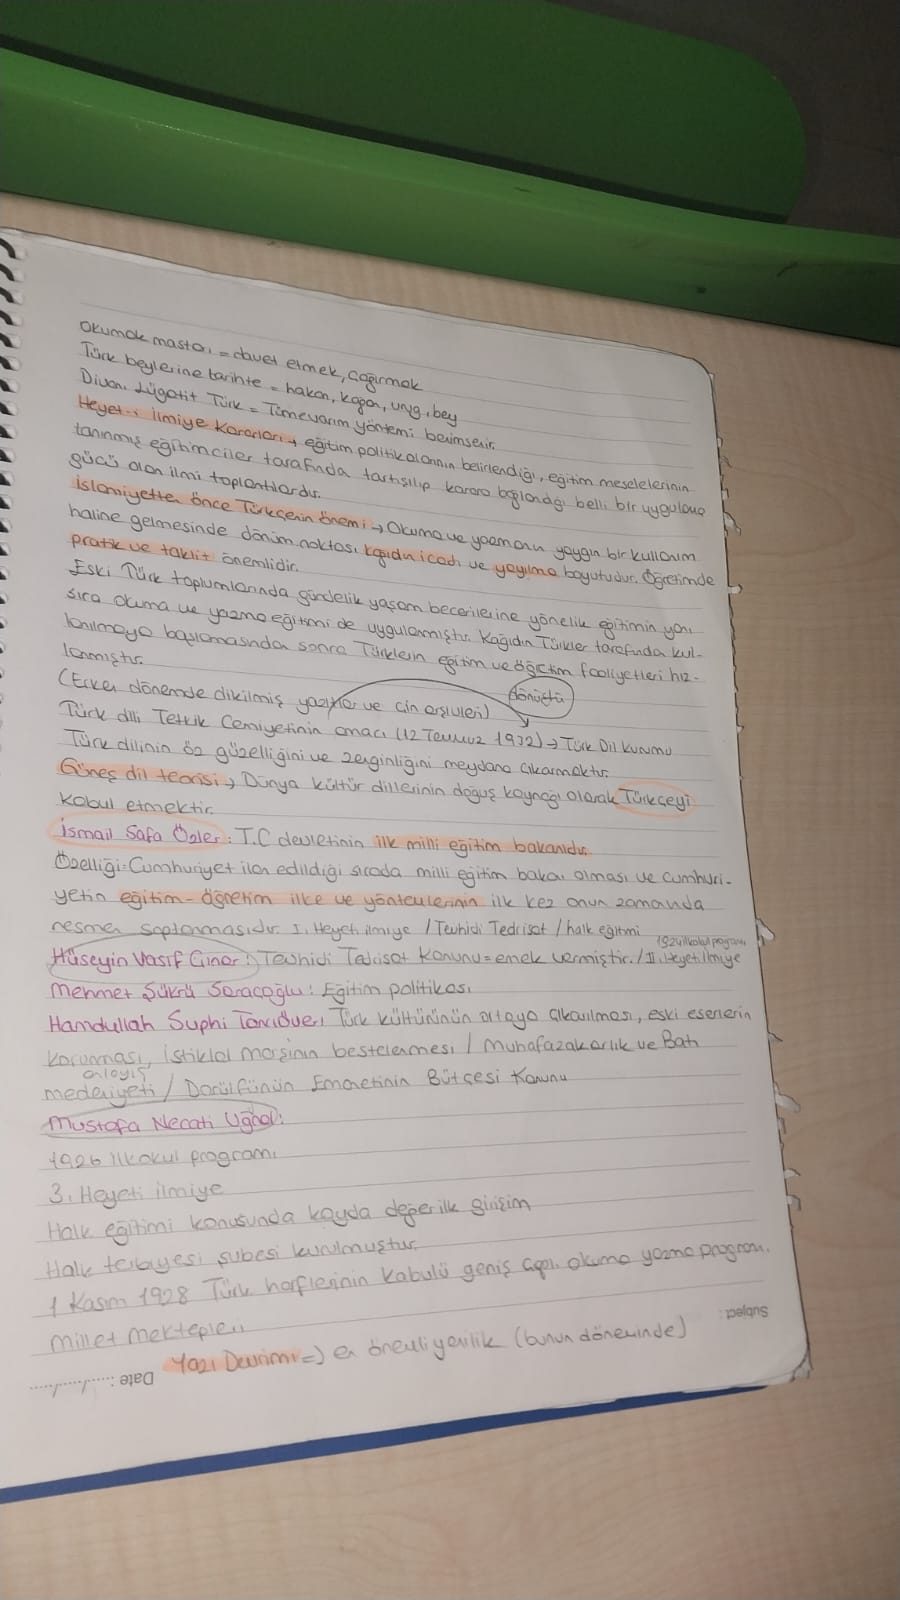 Okumak mastarı = davet etmek, çağırmak
Türk beylerine tarihte = hakan, kağan, uryg, bey
Divanı Lügatit Türk = Tümevarım yöntemi benimser.
Heyet-i İlmiye Kararları → eğitim politikalarının belirlendiği, eğitim meselelerinin
tanınmış eğitimciler tarafında tartışılıp karara bağlandığı belli bir uygulama
gücü olan ilmi toplantılardır.
İslamiyetten önce Türkçenin önemi → Okuma ve yazmanın yaygın bir kullanım
haline gelmesinde dönüm noktası kağıdın icadı ve yayılma boyutudur. Öğretimde
pratik ve taklit önemlidir.
Eski Türk toplumlarında gündelik yaşam becerilerine yönelik eğitimin yanı
sıra okuma ve yazma eğitimi de uygulanmıştır. Kağıdın Türkler tarafında kul-
lanılmaya başlamasında sonra Türklerin eğitim ve öğretim faaliyetleri hız-
lanmıştır.
(Erken dönemde dikilmiş yazıtlar ve Çin arşivleri) dönüştü
Türk dili Tetkik Cemiyetinin amacı (12 Temmuz 1932) → Türk Dil Kurumu
Türk dilinin öz güzelliğini ve zenginliğini meydana çıkarmaktır.
Güneş dil teorisi → Dünya kültür dillerinin doğuş kaynağı olarak Türkçeyi
kabul etmektir.
İsmail Safa Özler: T.C devletinin ilk milli eğitim bakanıdır.
Özelliği: Cumhuriyet ilan edildiği sırada milli eğitim bakanı olması ve cumhuri-
yetin eğitim-öğretim ilke ve yöntemlerinin ilk kez onun zamanında
resmen saptanmasıdır. I. Heyeti ilmiye / Tevhidi Tedrisat / halk eğitimi
1924 ilkokul programı
Hüseyin Vasıf Çınar: Tevhidi Tedrisat Kanunu = emek vermiştir. / II. Heyet ilmiye
Mehmet Şükrü Saraçoğlu: Eğitim politikası
Hamdullah Suphi Tanrıöver: Türk kültürünün ortaya çıkarılması, eski eserlerin
korunması, İstiklal marşının bestelenmesi / Muhafazakarlık ve Batı
anlayış
medeniyeti / Darülfünün Emanetinin Bütçesi Kanunu
Mustafa Necati Uğral:
1926 İlkokul programı
3. Heyeti ilmiye
Halk eğitimi konusunda kayda değer ilk girişim
Halk terbiyesi şubesi kurulmuştur.
1 Kasım 1928 Türk harflerinin kabulü geniş çaplı okuma yazma programı.
Millet Mektepleri
Yazı Devrimi => en önemli yenilik (bunun döneminde)
Subject :
Date : ....../....../......